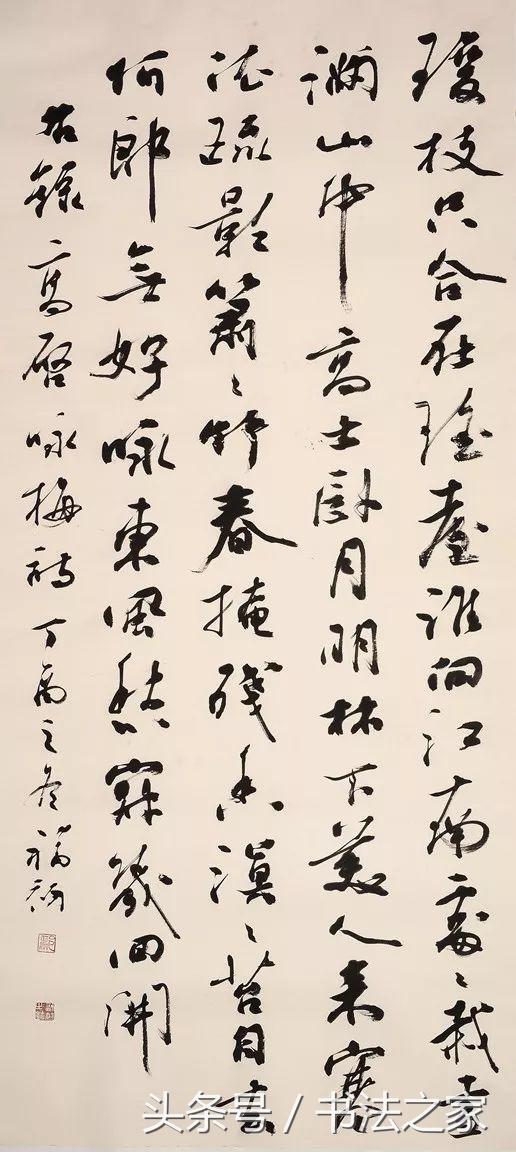 瓊枝只合在瑤臺誰向江南處〻栽雪
滿山中高士臥月明林下美人來寒
依疏影蕭〻竹春掩殘香漠〻苔自去
何郎無好咏東風愁寂幾回開
右錄高啓咏梅詩 丁酉之冬 福
头条号 / 书法之家